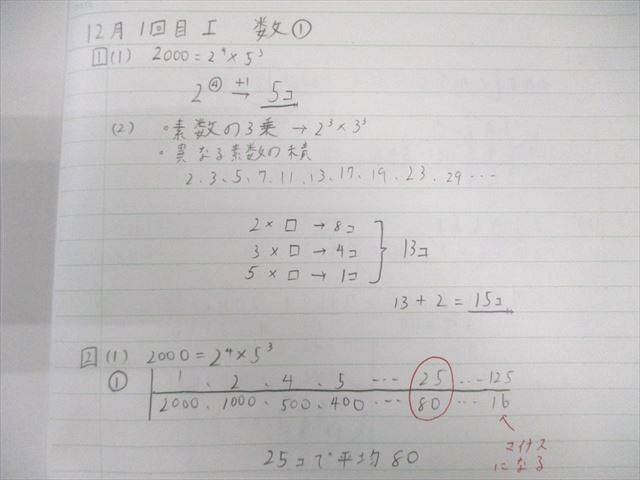 12月 1回目 I 数文①
1 (1) 2000 = 2⁴ × 5³
2④ +1→ 5コ
(2) ・素数の3乗 → 2³ × 3³
・異なる素数の積
2、3、5、7、11、13、17、19、23、29 …
2 × □ → 8コ
3 × □ → 4コ
5 × □ → 1コ
} 13コ
13 + 2 = 15コ
2 (1) 2000 = 2⁴ × 5³
① 1、2、4、5 … 25 … 125
2000、1000、500、400 … 80 … 16
マイナス
になる
25コで平均 80